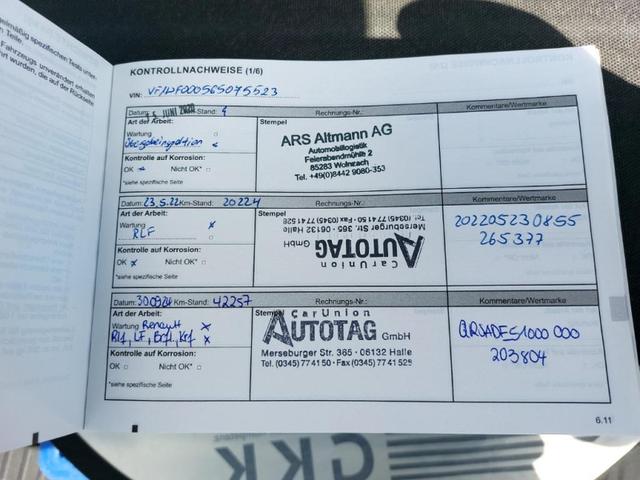 elmäßig spezifischen Tests unter-
n Teile.
Fahrzeugs unverändert erhalten
rt wurden, die auf der Rückseite
KONTROLLNACHWEISE (1/6)
VIN: VF1DF000565075523
Datum: JUNI 2020 Km-Stand: 4 Rechnungs-Nr.: Kommentare/Wertmarke
Art der Arbeit:
Wartung
Übergabeinspektion
Kontrolle auf Korrosion:
OK Nicht OK*
*siehe spezifische Seite
Stempel
ARS Altmann AG
Automobillogistik
Feierabendmühle 2
85283 Wolnzach
Tel. +49(0)8442 9080-353
Datum: 23.5.22 Km-Stand: 20224 Rechnungs-Nr.: Kommentare/Wertmarke
Art der Arbeit:
Wartung x
RLF
Kontrolle auf Korrosion:
OK x Nicht OK*
*siehe spezifische Seite
Stempel
CarUnion
AUTOTAG GmbH
Merseburger Str. 365 · 06132 Halle
Tel. (0345) 77 41 50 · Fax (0345) 77 41 528
202205230855
265377
Datum: 300924 Km-Stand: 42257 Rechnungs-Nr.: Kommentare/Wertmarke
Art der Arbeit:
Wartung Renault x
Rlf, LF, Bfl, Krf x
Kontrolle auf Korrosion:
OK Nicht OK*
*siehe spezifische Seite
Stempel
CarUnion
AUTOTAG GmbH
Merseburger Str. 365 · 06132 Halle
Tel. (0345) 77 41 50 · Fax (0345) 77 41 528
QRSADES1000000
203804
6.11
GKK